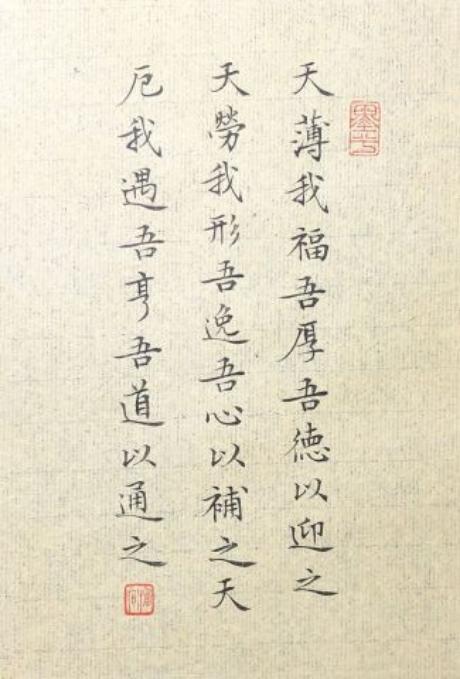 天薄我福吾厚吾德以迎之
天勞我形吾逸吾心以補之天
厄我遇吾亨吾道以通之